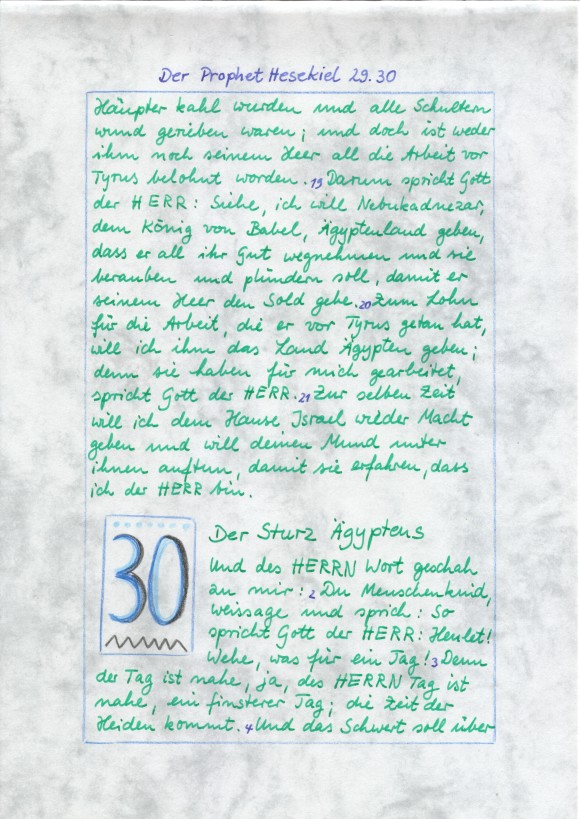 Der Prophet Hesekiel 29.30
Häupter kahl wurden und alle Schultern
wund gerieben waren; und doch ist weder
ihm noch seinem Heer all die Arbeit vor
Tyrus belohnt worden. 19 Darum spricht Gott
der HERR: Siehe, ich will Nebukadnezar,
dem König von Babel, Ägyptenland geben,
dass er all ihr Gut wegnehmen und sie
berauben und plündern soll, damit er
seinem Heer den Sold gebe. 20 Zum Lohn
für die Arbeit, die er vor Tyrus getan hat,
will ich ihm das Land Ägypten geben;
denn sie haben für mich gearbeitet,
spricht Gott der HERR. 21 Zur selben Zeit
will ich dem Hause Israel wieder Macht
geben und will deinen Mund unter
ihnen auftun, damit sie erfahren, dass
ich der HERR bin.
30
Der Sturz Ägyptens
Und des HERRN Wort geschah
zu mir: 2 Du Menschenkind,
weissage und sprich: So
spricht Gott der HERR: Heulet!
Wehe, was für ein Tag! 3 Denn
der Tag ist nahe, ja, des HERRN Tag ist
nahe, ein finsterer Tag; die Zeit der
Heiden kommt. 4 Und das Schwert soll über